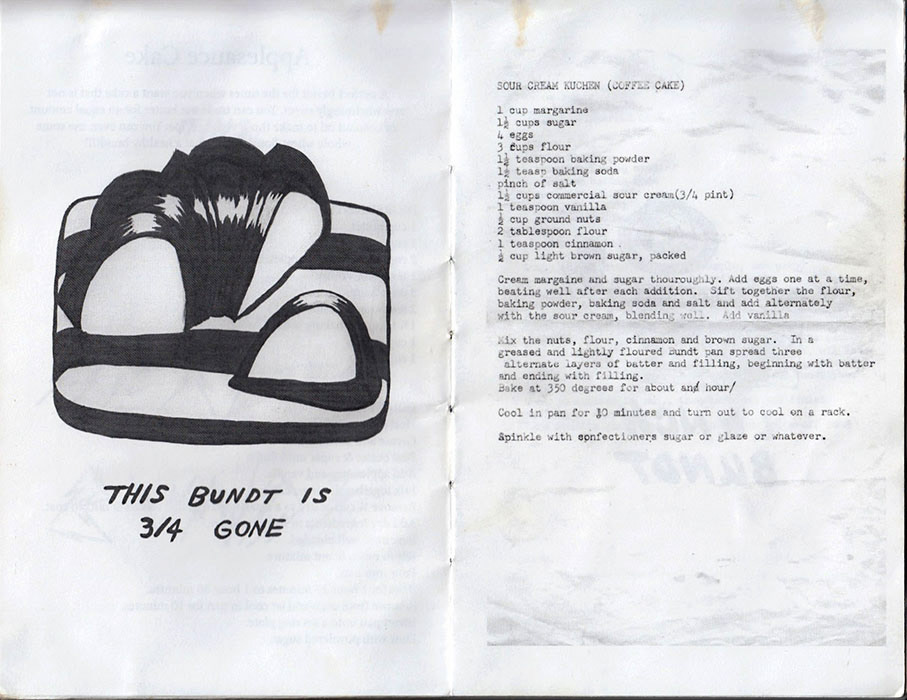 THIS BUNDT IS
3/4 GONE
SOUR CREAM KUCHEN (COFFEE CAKE)
1 cup margarine
1½ cups sugar
4 eggs
3 cups flour
1½ teaspoon baking powder
1½ teasp baking soda
pinch of salt
1½ cups commercial sour cream(3/4 pint)
1 teaspoon vanilla
½ cup ground nuts
2 tablespoon flour
1 teaspoon cinnamon
½ cup light brown sugar, packed
Cream margaine and sugar thouroughly. Add eggs one at a time,
beating well after each addition. Sift together the flour,
baking powder, baking soda and salt and add alternately
with the sour cream, blending well. Add vanilla
Mix the nuts, flour, cinnamon and brown sugar. In a
greased and lightly floured Bundt pan spread three
alternate layers of batter and filling, beginning with batter
and ending with filling.
Bake at 350 degrees for about an hour/
Cool in pan for 10 minutes and turn out to cool on a rack.
Spinkle with confectioners sugar or glaze or whatever.